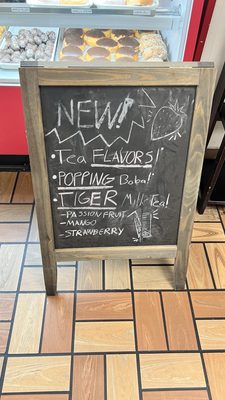 NEW!
• Tea FLAVORS!
• POPPING Boba!
• TIGER Milk Tea!
- PASSION FRUIT
- MANGO
- STRAWBERRY